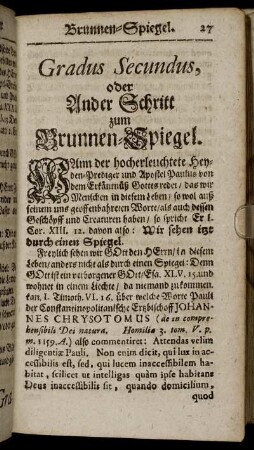 Brunnen-Spiegel. 27
Gradus Secundus,
oder
Ander Schritt
zum
Brunnen-Spiegel.
WAnn der hocherleuchtete Hey-
den-Prediger und Apostel Paulus von
dem Erkäntnüß Gottes redet, das wir
Menschen in diesem Leben, so wol auß
seinem uns geoffenbahreten Worte, als auch dessen
Geschöpff und Creaturen haben, so spricht Er 1.
Cor. XIII. 12. davon also: Wir sehen itzt
durch einen Spiegel.
Freylich sehen wir GOtt den HErrn, in diesem
Leben, anders nicht als durch einen Spiegel: Denn
GOtt ist ein verborgener GOtt, Esa. XLV. 15. und
wohnet in einem Liechte, da niemand zukommen
kan. I. Timoth. VI. 16. über welche Worte Pauli
der Constantinopolitanische Ertzbischoff JOHAN-
NES CHRYSOTOMUS (de incompre-
hensibili Dei natura. Homilia 3. tom. V. p.
m. 1159. A.) also commentiret: Attendas velim
diligentiæ Pauli. Non enim dicit, qui lux in ac-
cessibilis est, sed, qui lucem inaccessibilem ha-
bitat, scilicet ut intelligas quàm ipse habitans
Deus inaccessibilis sit, quando domicilium,
quod